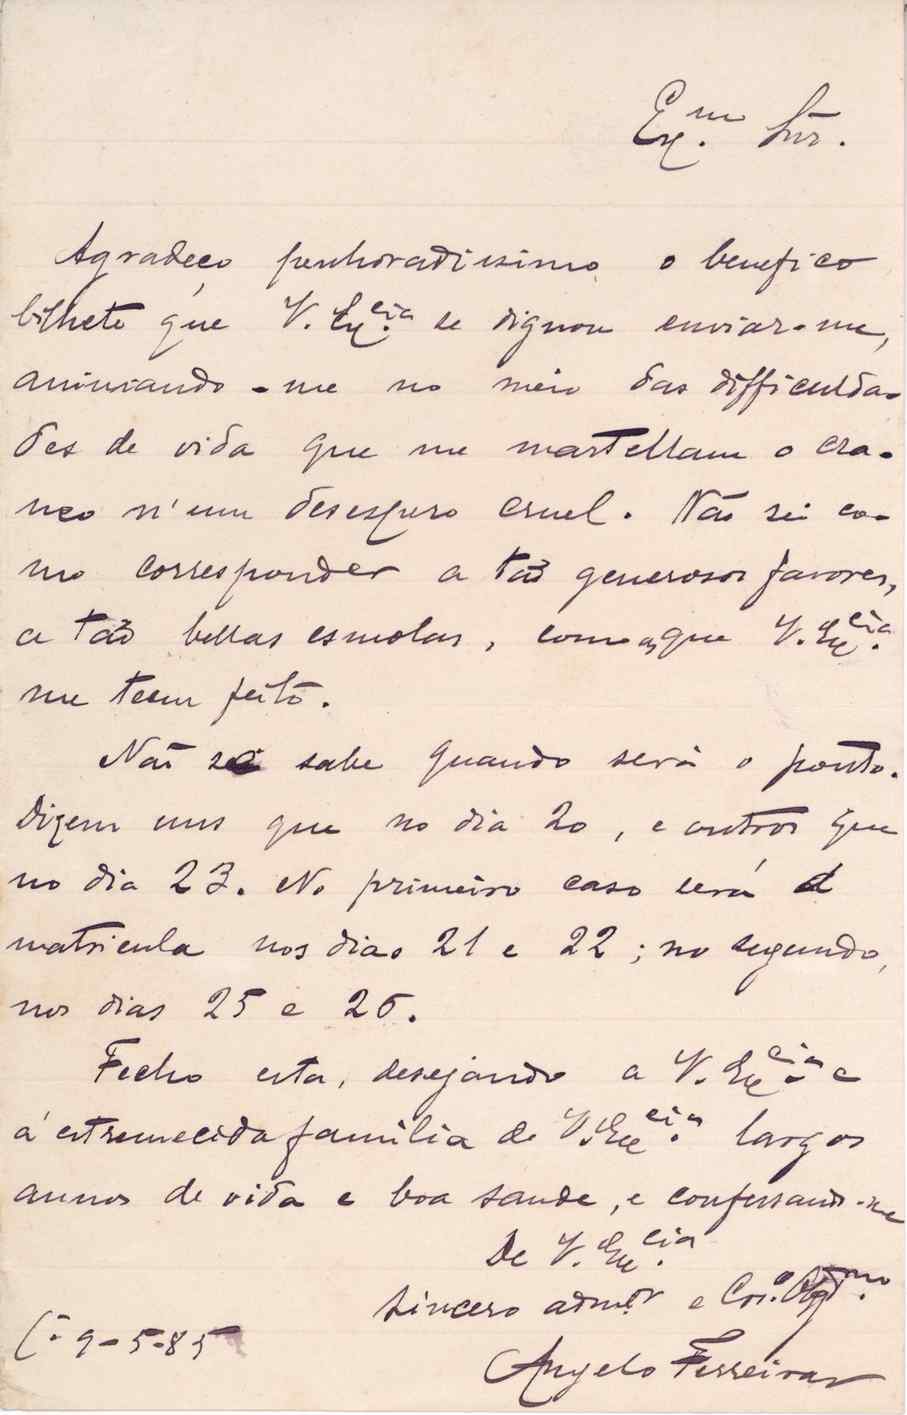 Ex.mo Snr.
Agradeço penhoradissimo o benefico
bilhete que V. Ex.cia se dignou enviar-me,
animando-me no meio das difficulda-
des de vida que me martellam o cra-
neo n'um desespero cruel. Não sei co-
mo corresponder a tão generosos favores,
a tão bellas esmolas, como as que V. Ex.cia
me teem feito.
Não se sabe quando será o ponto.
Dizem uns que no dia 20, e outros que
no dia 23. No primeiro caso será a
matricula nos dias 21 e 22; no segundo,
nos dias 25 e 26.
Fecho esta, desejando a V. Ex.cia e
á estremecida familia de V. Ex.cia largos
annos de vida e boa saude, e confessando-me
De V. Ex.cia
sincero adm.or e Cr.o Obgd.mo
9-5-85
Angelo Ferreira